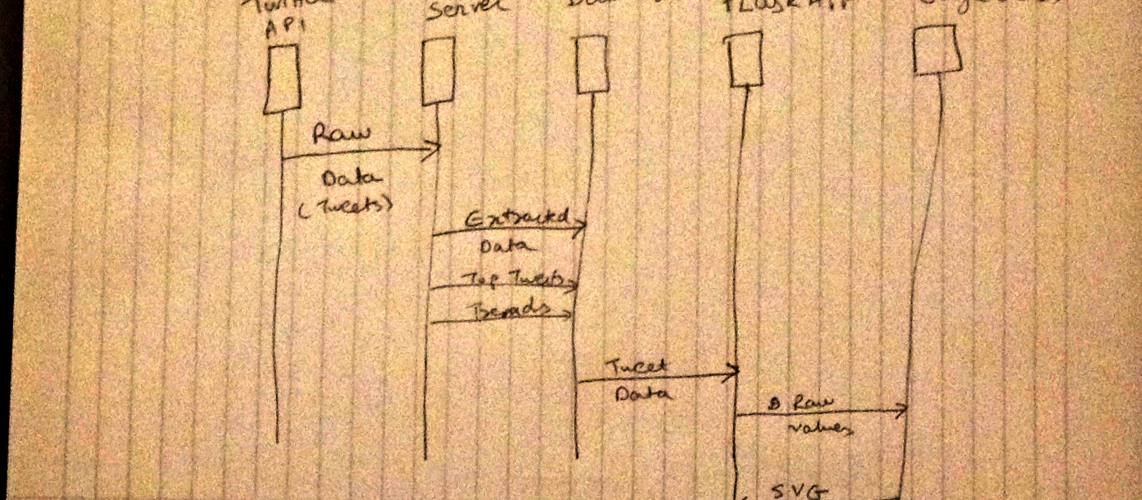 Server
API
Raw
Data
(Tweets)
Extracted
Data
Top Tweets
Trends
Tweet
Data
Raw
values
SVG